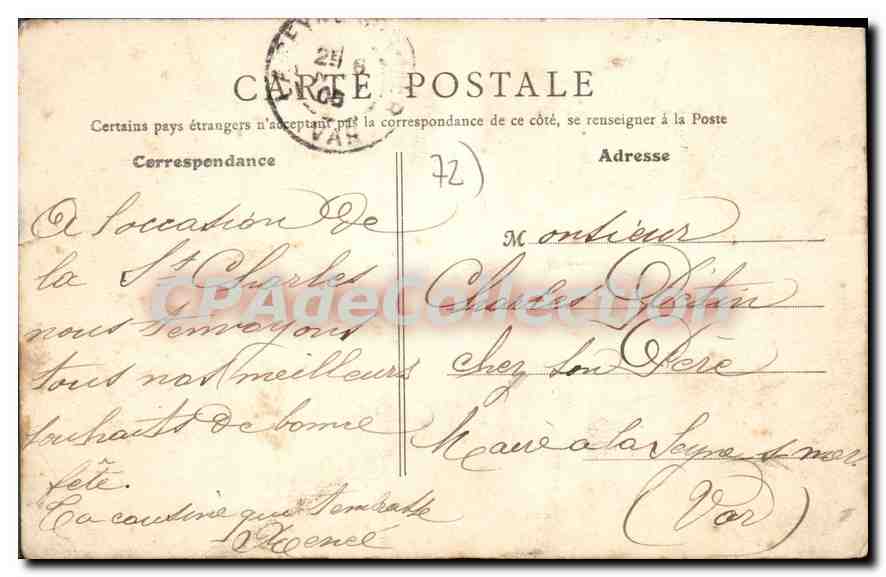 LA SEYNE
25 8
05
VAR
CARTE POSTALE
Certains pays étrangers n'acceptent pas la correspondance de ce côté, se renseigner à la Poste
Correspondance
A l'occasion de
la St Charles
nous t'envoyons
tous nos meilleurs
souhaits de bonne
fête.
Ta cousine qui t'embrasse
Renée
72)
Adresse
Monsieur
Charles
chez son Père
Maire a la Seyne s mer
(Var)
CPAdeCollection